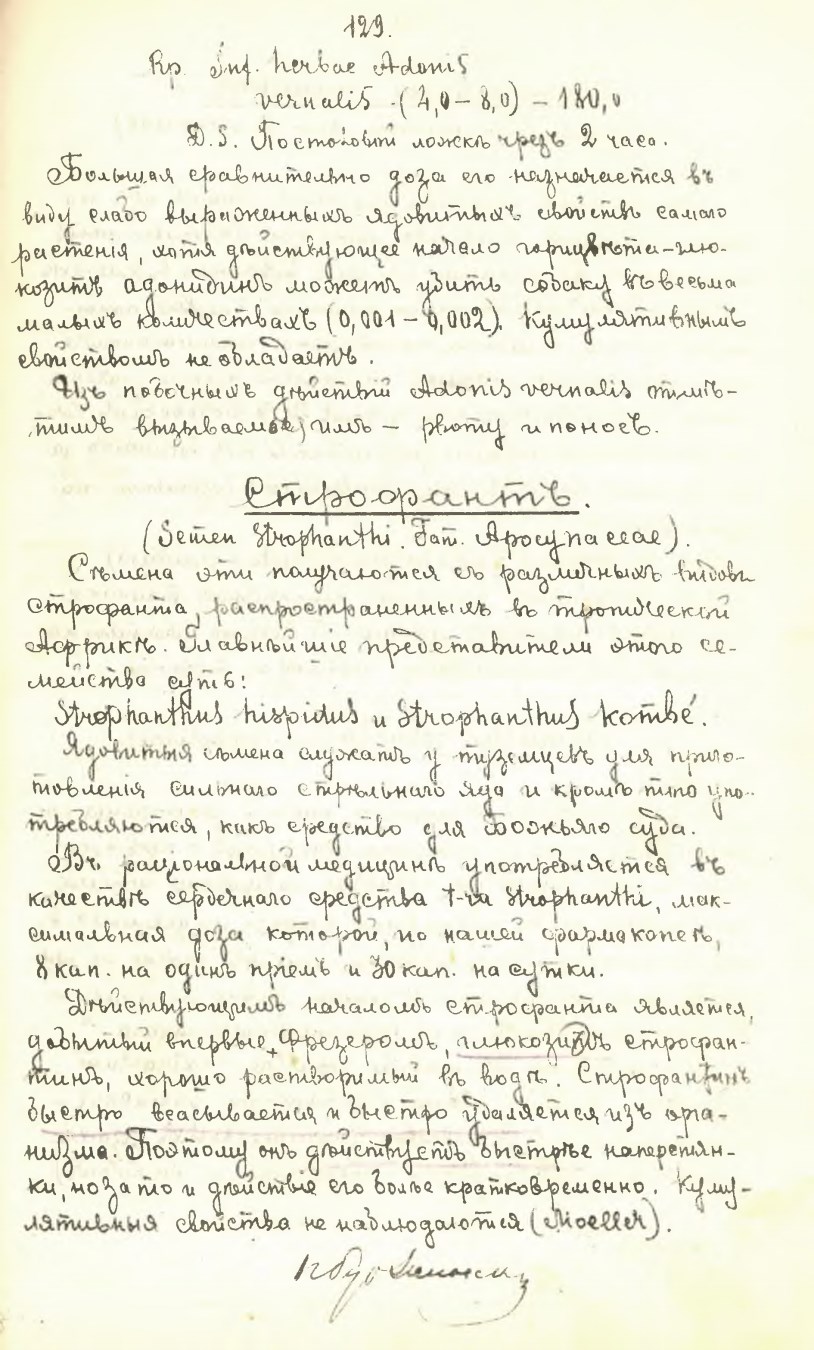 129.
Rp. Inf. herbae Adonis
vernalis (4,0 – 8,0) – 180,0
D. S. По столовой ложкѣ чрезъ 2 часа.
Большая сравнительно доза его назначается въ
виду слабо выраженныхъ ядовитыхъ свойствъ самаго
растенія, хотя дѣйствующее начало горицвѣта – глю-
козитъ адонидинъ можетъ убить собаку въ весьма
малыхъ количествахъ (0,001 – 0,002). Кумулятивнымъ
свойствомъ не обладаетъ.
Изъ побочныхъ дѣйствій Adonis vernalis отмѣ-
тимъ вызываемые имъ – рвоту и поносъ.
Строфантъ.
(Semen Strophanthi. Fam. Apocynaceae).
Сѣмена эти получаются съ различныхъ видовъ
строфанта, распространенныхъ въ тропической
Африкѣ. Главнѣйшіе представители этого се-
мейства суть:
Strophanthus hispidus и Strophanthus Kombé.
Ядовитыя сѣмена служатъ у туземцевъ для приго-
товленія сильнаго стрѣльнаго яда и кромѣ того упо-
требляются, какъ средство для божьяго суда.
Въ раціональной медицинѣ употребляется въ
качествѣ сердечнаго средства t-ra Strophanthi, мак-
симальная доза которой, по нашей фармакопеѣ,
8 кап. на одинъ пріемъ и 30 кап. на сутки.
Дѣйствующимъ началомъ строфанта является,
добытый впервые Фрезеромъ, глюкозитъ строфан-
тинъ, хорошо растворимый въ водѣ. Строфантинъ
быстро всасывается и быстро удаляется изъ орга-
низма. Поэтому онъ дѣйствуетъ быстрѣе наперстян-
ки, но за то и дѣйствіе его болѣе кратковременно. Куму-
лятивныя свойства не наблюдаются (Moeller).